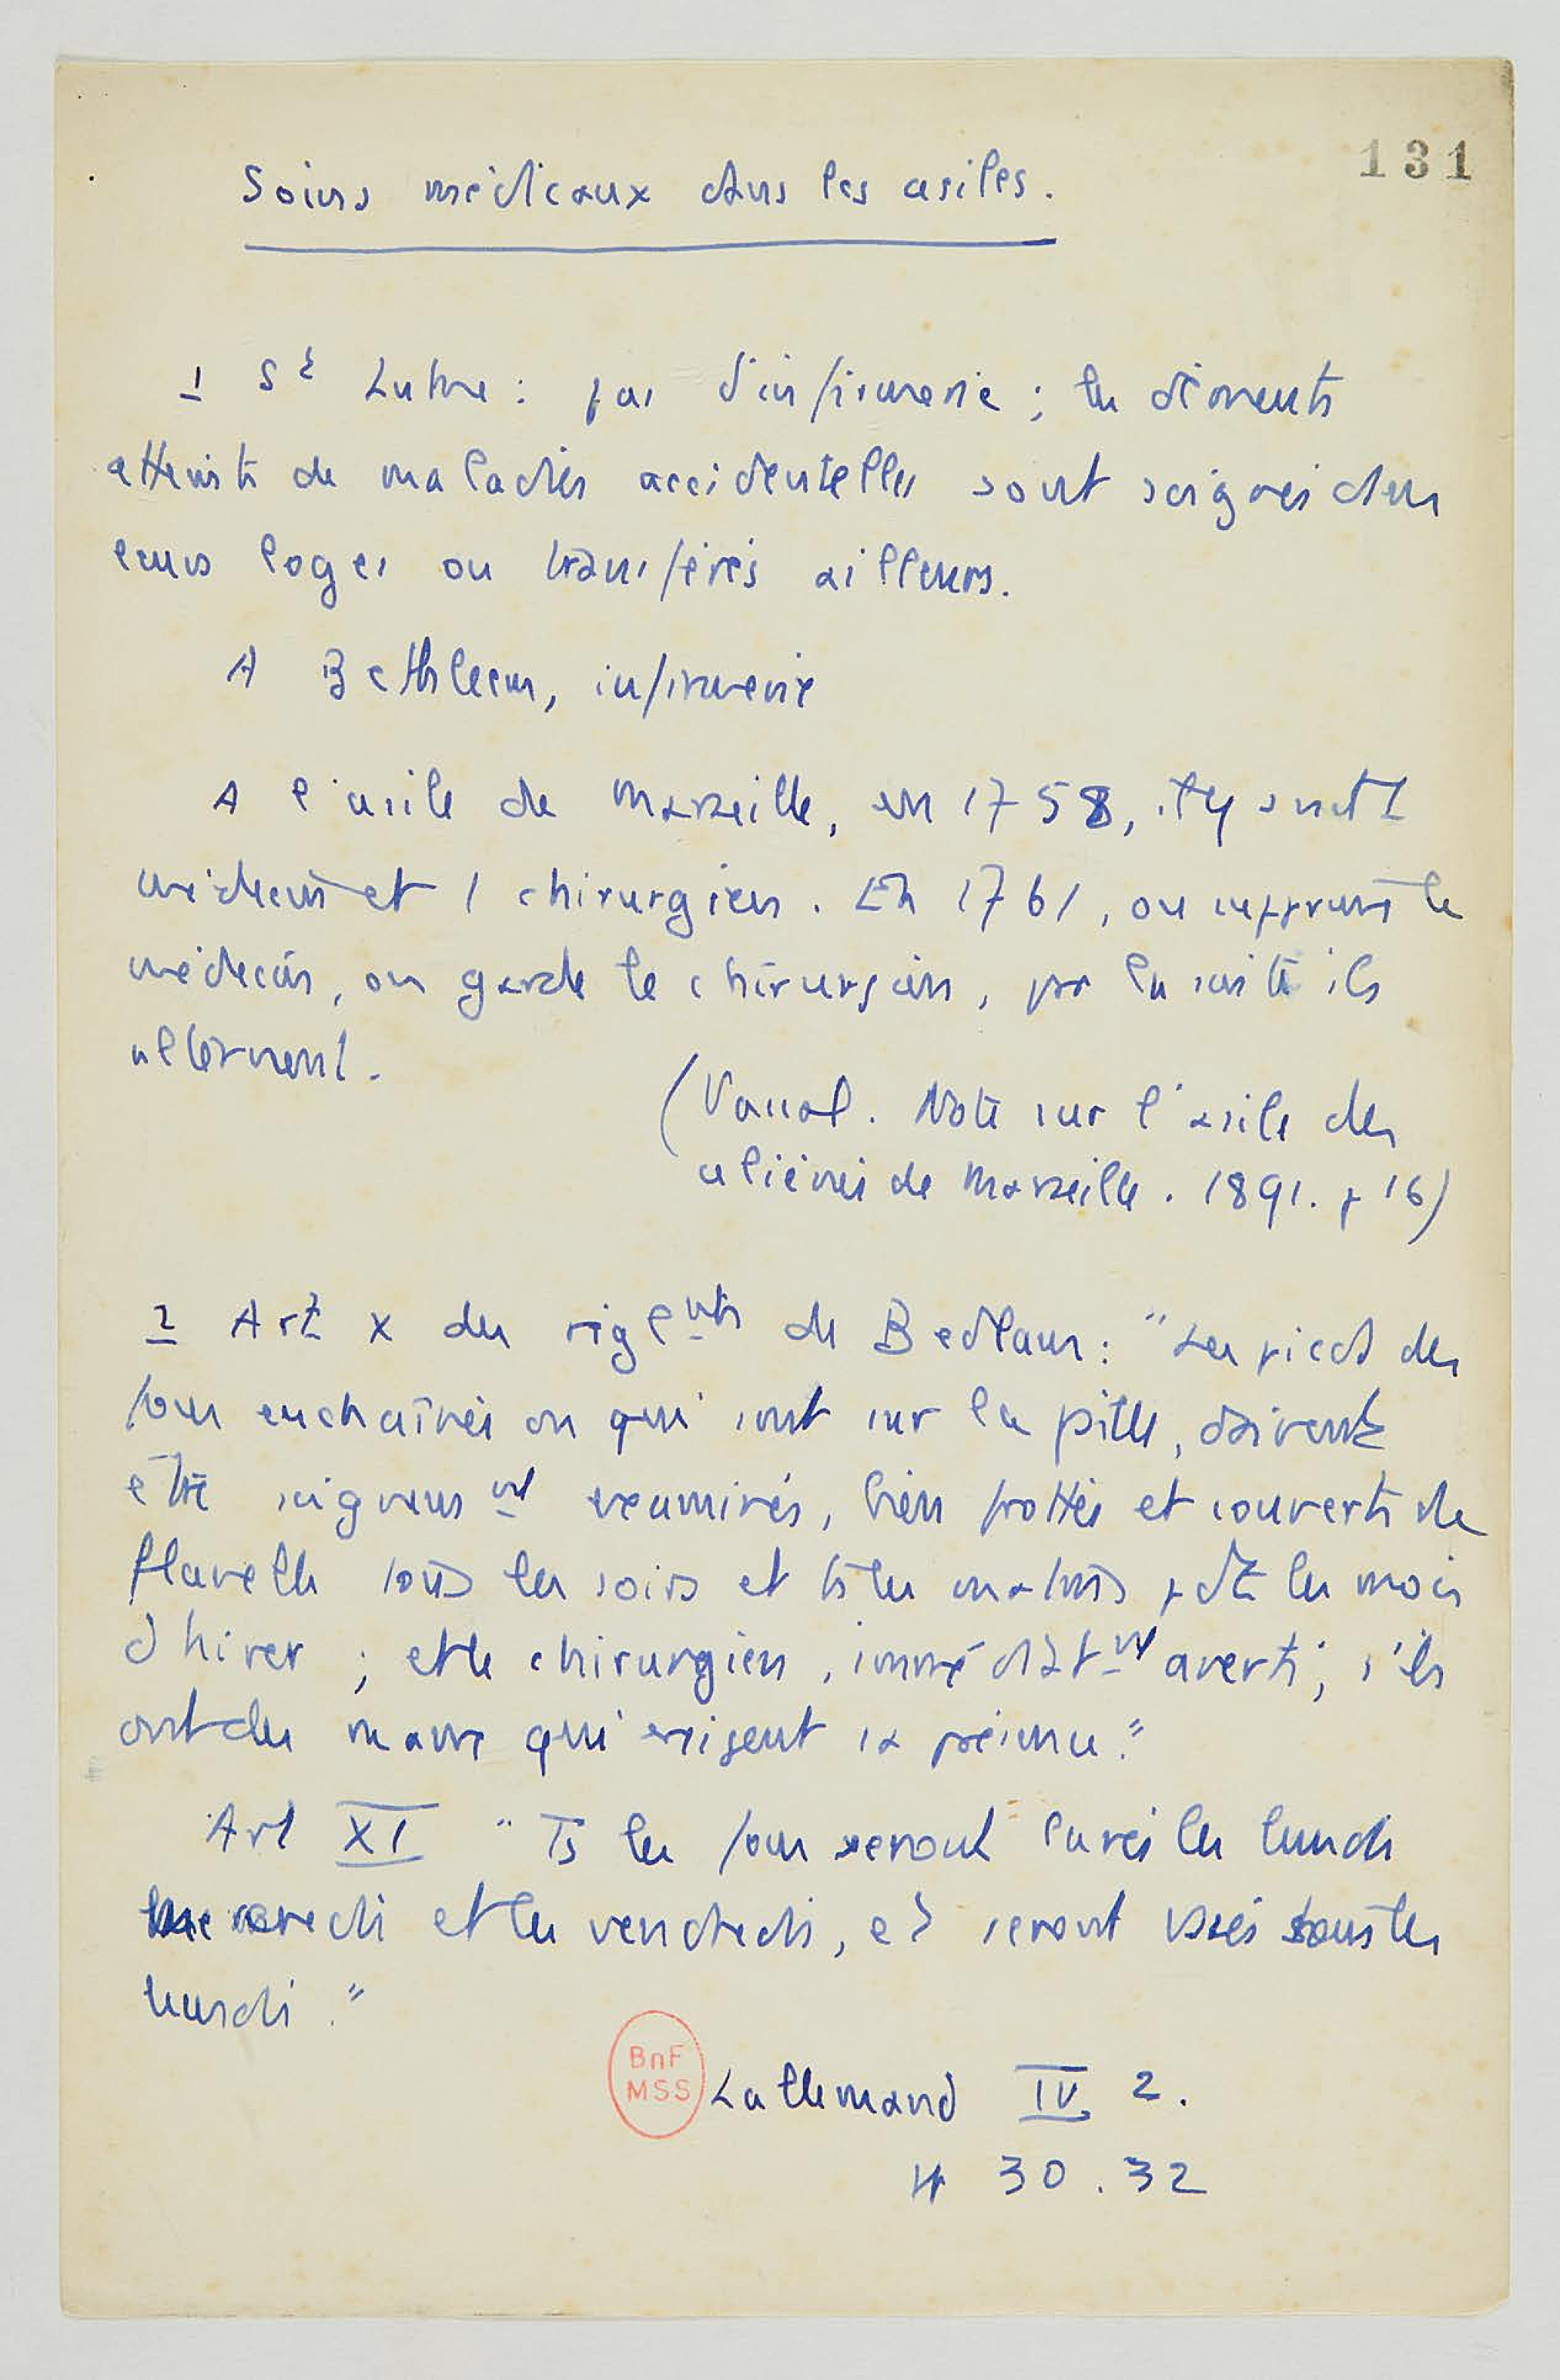 131
Soins médicaux dans les asiles.
1 St Luthre : pas d'infirmerie ; les déments
atteints de maladies accidentelles sont soignés dans
leurs loges ou transférés ailleurs.
A Bethleem, infirmerie
A l'asile de Marseille, en 1758, il y avait 1
médecin et 1 chirurgien. En 1761, on supprime le
médecin, on garde le chirurgien, par la suite ils
alternent.
( Note sur l'asile des
aliénés de Marseille. 1891. p 16)
2 Art X des réglnts de Bedlam : "Les pieds des
fous enchaînés ou qui sont sur la paille, doivent
être soigneusnt examinés, bien frottés et couverts de
flanelle tous les soirs et ts les matins pdt les mois
d'hiver ; et le chirurgien, immédiatnt averti, s'ils
ont des maux qui exigent sa présence."
Art XI "Ts les fous seront lavés les lundi
mercredi et les vendredi, et seront rasés tous les
lundi."
BnF
MSS
Lallemand IV 2.
pp 30.32